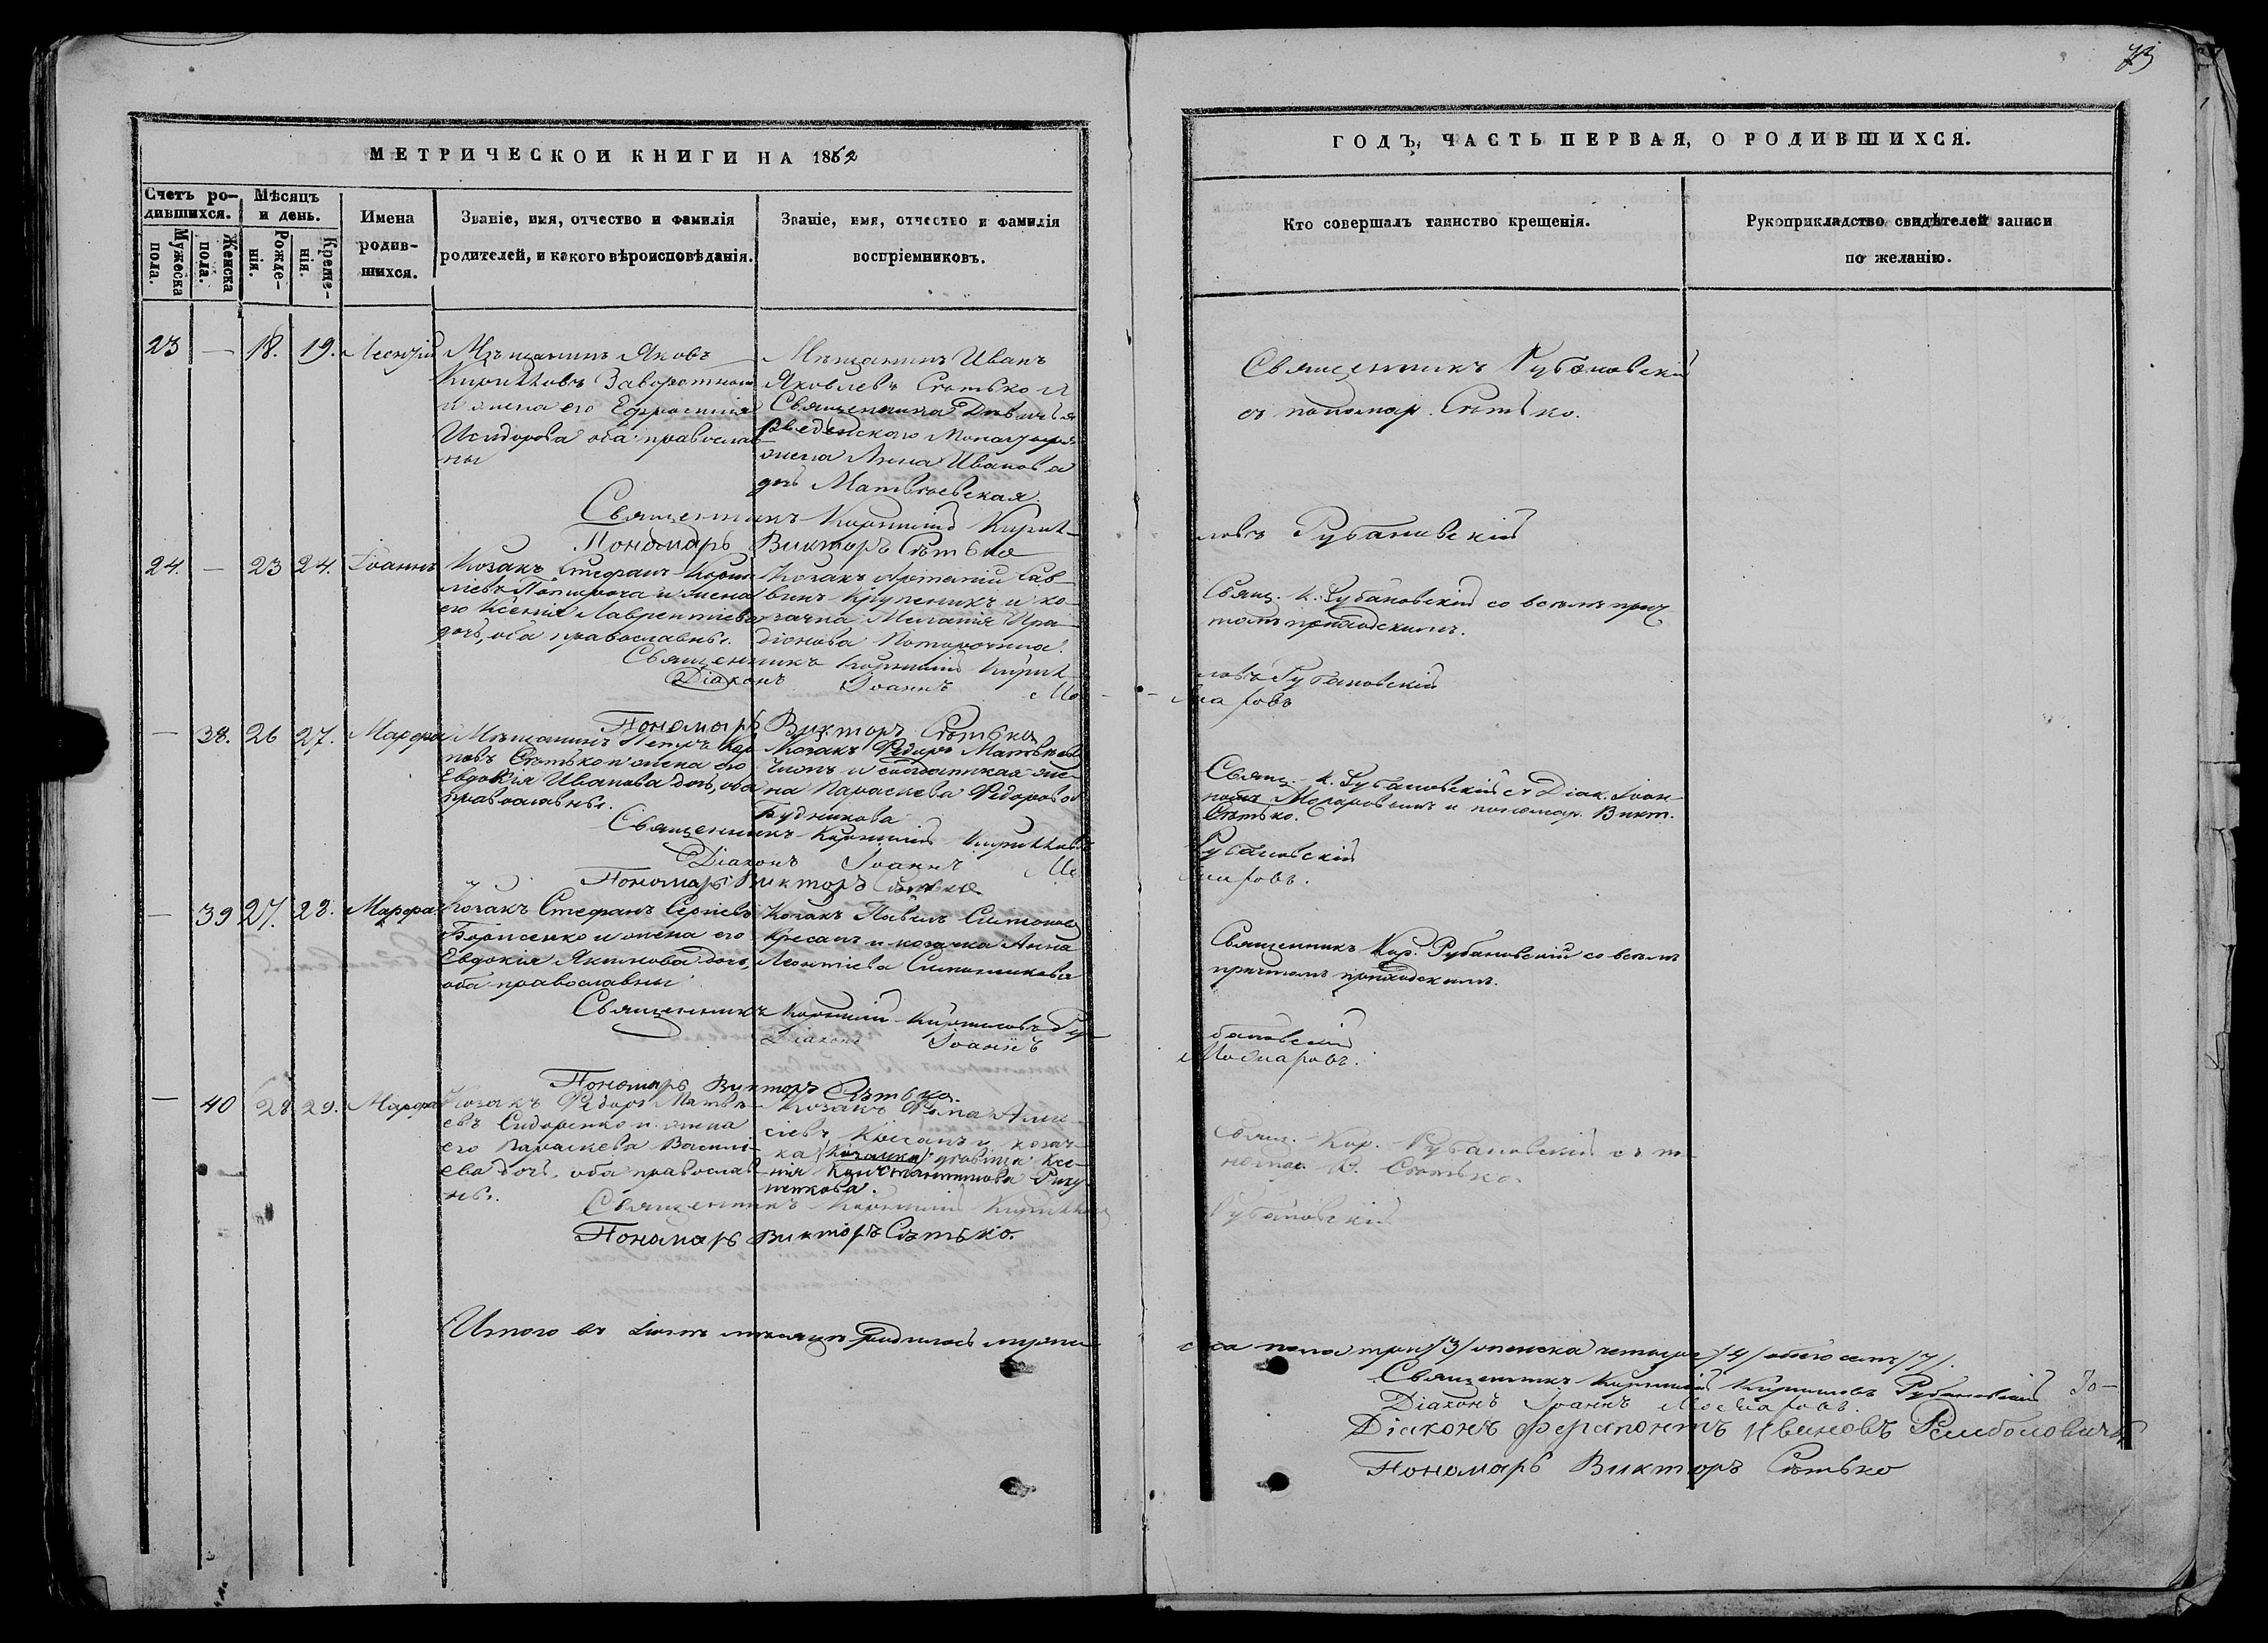 73
МЕТРИЧЕСКОЙ КНИГИ НА 1862
ГОДЪ, ЧАСТЬ ПЕРВАЯ, О РОДИВШИХСЯ.
Счетъ ро-
дившихся.
Мужеска
пола.
Женска
пола.
Мѣсяцъ
и день.
Рожде-
нія.
Креще-
нія.
Имена
родив-
шихся.
Званіе, имя, отчество и фамилія
родителей, и какого вѣроисповѣданія.
Званіе, имя, отчество и фамилія
воспріемниковъ.
Кто совершалъ таинство крещенія.
Рукоприкладство свидѣтелей записи
по желанію.
23 — 18. 19.
Мѣщанинъ Яковъ
Кирилловъ
и жена его Ефросинія
Исидорова оба православ-
ны
Мѣщанинъ Иванъ
Яковлевъ Сѣтько и
Священника
Введенскаго Монастыря
жена Анна Иванова
дочь Матвѣевская.
Священникъ Рубановскій
съ пономар. Сѣтько.
Священникъ Корнилій Кирил-
ловъ Рубановскій
Пономарь Викторъ Сѣтько
24. — 23 24. Іоаннъ
Козакъ Стефанъ Корни-
ліевъ и жена
его Ксенія Лаврентіева
дочь, оба православны.
Козакъ Артемій Сав-
винъ Крупеникъ и ко-
зачка Меланія Ира-
діонова
Свящ. К. Рубановскій со всѣмъ прич-
томъ приходскимъ.
Священникъ Корнилій Кирил-
ловъ Рубановскій
Діаконъ Іоаннъ
Пономарь Викторъ Сѣтько
— 38. 26 27. Марфа
Мѣщанинъ Петръ Кар-
повъ Сѣтько и жена его
Евдокія Иванова дочь, оба
православны.
Козакъ Ѳедоръ Матвѣевъ
и солдатская же-
на Параскева Ѳедорова
Будникова
Свящ. К. Рубановскій съ Діак. Іоан-
номъ и пономар. Викт.
Сѣтько.
Священникъ Корнилій Кирилловъ
Рубановскій
Діаконъ Іоаннъ
Пономарь Викторъ Сѣтько
— 39 27. 28. Марфа
Козакъ Стефанъ Сергіевъ
Борисенко и жена его
Евдокія Якимова дочь,
оба православны
Козакъ Павелъ Симоновъ
Кресанъ и козачка Анна
Леонтіева
Священникъ Кор. Рубановскій со всѣмъ
причтомъ приходскимъ.
Священникъ Корнилій Кирилловъ Ру-
бановскій
Діаконъ Іоаннъ
Пономарь Викторъ Сѣтько.
— 40 28. 29. Марфа
Козакъ Ѳедоръ Матвѣ-
евъ Сидоренко и жена
его Параскева Василі-
ева дочь, оба православ-
ны.
Козакъ Ѳома Алек-
сіевъ Кресанъ и козач-
ка (козачка) дѣвица Ксе-
нія Константинова
Свящ. Кор. Рубановскій съ по-
номар. В. Сѣтько.
Священникъ Корнилій Кирилловъ
Рубановскій
Пономарь Викторъ Сѣтько.
Итого въ мѣсяцѣ родилось муже-
ска пола три /3/ женска четыре /4/ обоего семь /7/.
Священникъ Корнилій Кирилловъ Рубановскій
Діаконъ Іоаннъ
Діаконъ Ферапонтъ Ивановъ
Пономарь Викторъ Сѣтько